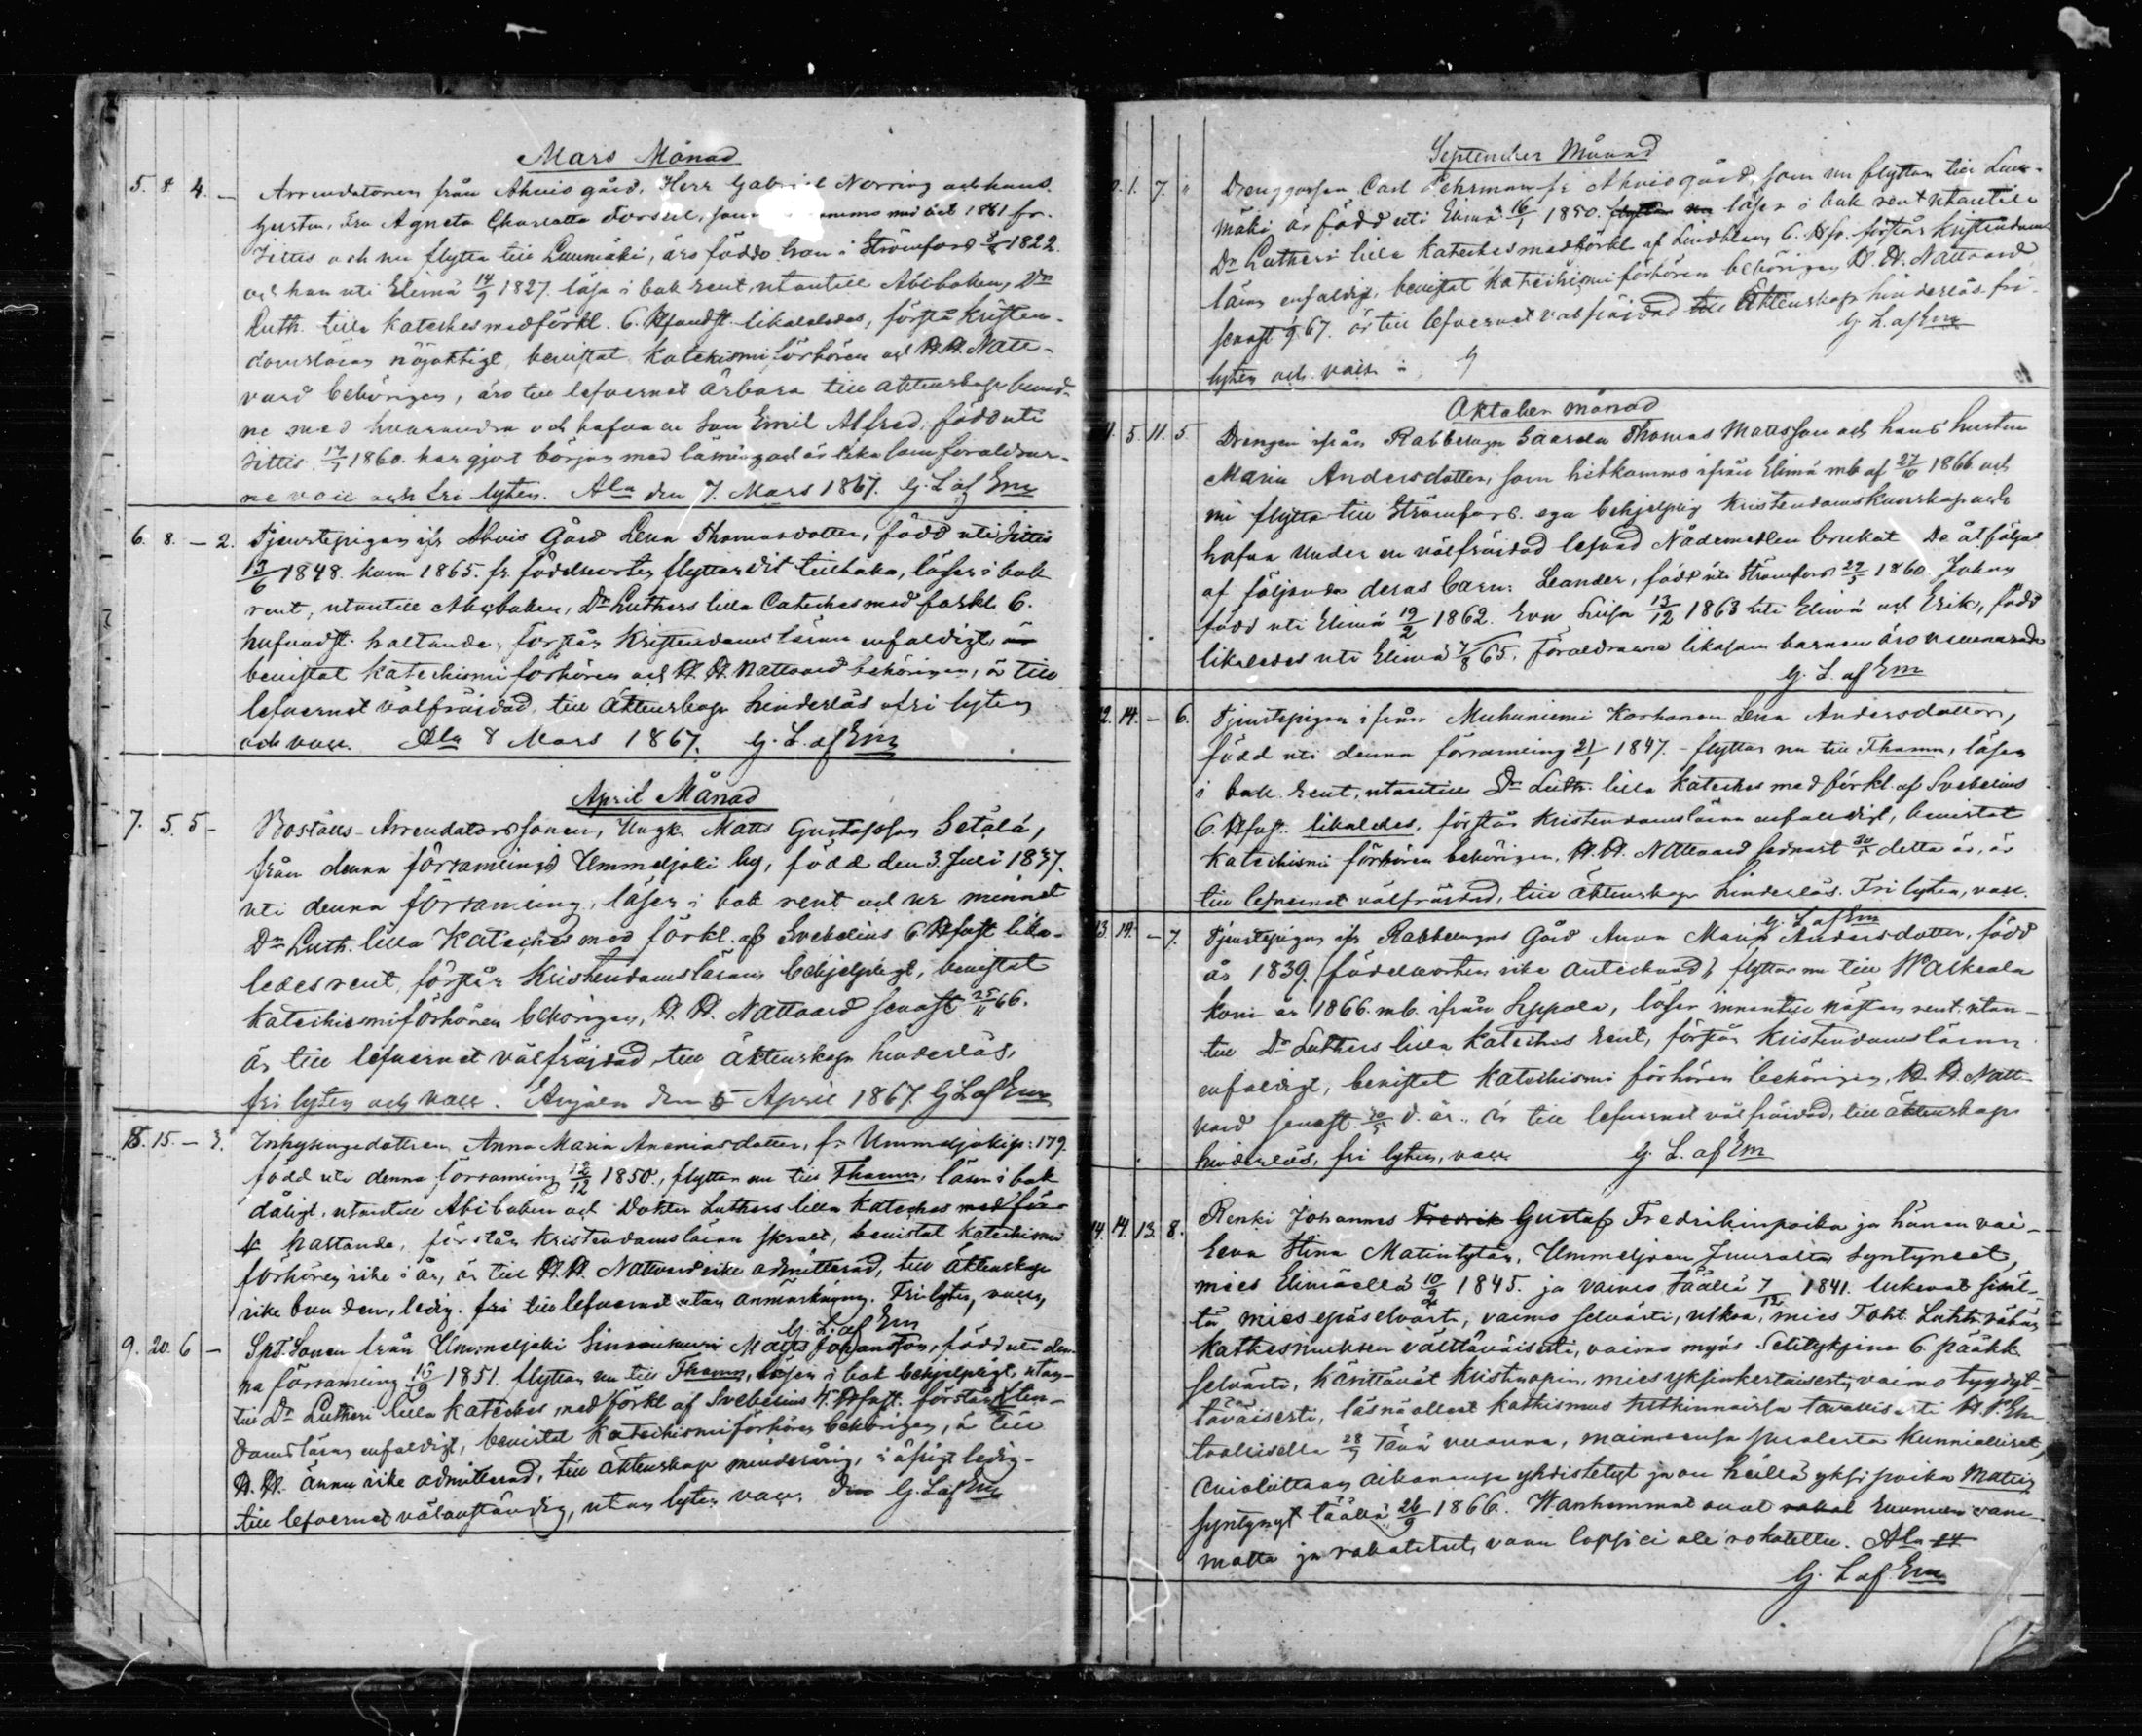 Mars Månad
5. 8 4. – Arrendatoren från Ahvis gård, Herr Gabriel Norring och hans
hustru, Fru Agneta Charlotta Forssel, som 1861 fr.
Jittis och nu flytta till Luumäki, äro födde hon i Strömfors 1822.
och han uti Elimä 14/9 1827. läsa i bok rent, utantill Abcboken, Dr
Luth. lilla Kateches med förkl. 6. Hufvudst. likaledes, förstå Kristen-
domsläran nöjaktigt, bevistat Katechismiförhören och H. H. Natt-
vard behörigen, äro till lefvernet ärbara till äktenskap bund-
ne med hvarandra och hafva en son Emil Alfred, född uti
Jittis 17/1 1860. har gjort början med läsning och är lika som föräldrar-
ne vacc och fri lyten. Ala den 7. Mars 1867. G. L af Em
6. 8. – 2. Tjenstepigan ifr Ahvis Gård Lena Thomasdotter, född uti Jittis
13/6 1848. kom 1865. fr. födelseorten flyttar dit tillbaka, läser i bok
rent, utantill Abcboken, Dr Luthers lilla Cateches med förkl. 6.
hufvudst. haltande, förstår Kristendomsläran enfaldigt, är
bevistat Katechismiförhören och H. H. Nattvard behörigen, är till
lefvernet välfräjdad, till äktenskap hinderlös o fri lyten
och vacc. Ala 8 Mars 1867. G. L. af Em
April Månad
7. 5. 5 – Boställs-Arrendatorssonen, Ungk. Matts Gustafsson Setälä,
från denna församlings Ummeljoki by, född den 3. Juli 1837.
uti denna församling, läser i bok rent och ur minnet
Dr Luth. lilla Kateches med förkl. af Svebelius 6 Hfvst lika-
ledes rent, förstår Kristendomsläran behjelpligt, bevistat
Katechismiförhören behörigen, H. H. Nattvard senast 25/11 66.
är till lefvernet välfräjdad, till äktenskap hinderlös,
fri lyten och vacc. Anjala den 5 April 1867. G L af Em
8. 15. – 3. Inhysingedottren Anna Maria Ananiasdotter, fr Ummeljoki p: 179.
född uti denna församling 12/12 1850., flyttar nu till Thamn, läser i bok
dåligt, utantill Abcboken och Doktor Luthers lilla Kateches med för-
haltande, förstår Kristendomsläran skralt, bevistat Katechismi
förhören icke i år, är till H. H. Nattvard icke admitterad, till äktenskap
icke bunden, ledig. fri till lefvernet utan anmärkning. Fri lyten, vacc,
G. L. af Em
9. 20. 6 – Spt. Sonen från Ummeljoki Matts Johansson, född uti den-
na församling 16/9 1851. flyttar nu till Thamn, läser i bok behjelpligt, utan-
till Dr Lutheri lilla Kateches med förkl af Svebelius 4. Hfvst. förstår Kristen-
domsläran enfaldigt, bevistat Katechismiförhören behörigen, är till
H. H. ännu icke admitterad, till äktenskap minderårig, i öfrigt ledig-
till lefvernet välanständig, utan lyten vacc. G. L af Em
September Månad
1. 7. " Drenggossen Carl Fehrman fr Ahvis gård, som nu flyttar till Luu-
mäki är född uti Elimä 16/1 1850. flyttar nu läser i bok rent utantill
Dr Lutheri lilla Kateches med förkl af Lindblom, 6. Hfst. förstår Kristendoms
läran enfaldigt, bevistat Katechismiförhören behörigen, H. H. Nattvard
senast 67. är till lefvernet välfräjdad till Äktenskap hinderlös. fri
lyten och vacc. G. L. af Em
Oktober månad
11. 5. 11. 5. Drengen ifrån Rabbelugn Saarela Thomas Mattsson och hans hustru
Maria Andersdotter, som hitkommo ifrån Elimä mb af 27/10 1866 och
nu flytta till Strömfors. ega behjelplig Kristendomskunskap och
hafva under en välfräjdad lefnad Nådemedlen brukat De åtföljas
af följande deras barn: Leander, född uti Strömfors 29/5 1860. Johan
född uti Elimä 19/2 1862. Eva Luisa 13/12 1863 uti Elimä och Erik, född
likaledes uti Elimä 7/8 65. Föräldrarne likasom barnen äro vaccinerade
G. L. af Em
12. 14. – 6. Tjenstepigan ifrån Muhuniemi Korhonen Lena Andersdotter,
född uti denna församling 21/1 1847. – flyttar nu till Thamn, läser
i bok rent, utantill Dr Luth. lilla Kateches med förkl. af Svebelius
6. Hfvst. likaledes, förstår Kristendomsläran enfaldigt, bevistat
Katechismi förhören behörigen, H. H. Nattvard sednast 30/5 detta år, är
till lefvernet välfräjdad, till äktenskap hinderlös. Fri lyten, vacc.
G. L af Em
13. 19. – 7. Tjenstepigan ifr Rabbelugns Gård Anna Maria Andersdotter, född
år 1839. (födelseorten icke antecknad), flyttar nu till Walkeala
kom år 1866. mb. ifrån Sippola, läser innantill nästan rent. utan-
till Dr Luthers lilla Kateches rent, förstår Kristendomsläran
enfaldigt, bevistat Katechismi förhören behörigen, H. H. Natt-
vard senast 30/5 d. år., är till lefvernet välfräjdad, till äktenskap
hinderlös, fri lyten, vacc G. L. af Em
14. 14. 13. 8. Renki Johannes Fredrik Gustaf Fredrikinpoika ja hänen vai-
Eeva Stina Matintytär, Ummeljoen Junralta, syntyneet,
mies Elimäellä 10/2 1845. ja vaimo täällä 7/12 1841. lukevat sisäl-
tä mies epäselvästi, vaimo selvästi, ulkoa, mies Toht. Luth. vähän
Katkesmuksen välttäväisesti, vaimo myös Selitykjine 6. pääkk.
selvästi, käsittävät kristinopin, mies yksinkertaisesti, vaimo tyydyt-
täväisesti, läsnä olleet Katkismus tutkinnoissa tavallisesti H. P. Eh-
toollisella 28/7 tänä vuonna, maineensa puolesta kunnialliset,
avioliittoon aikanansa yhdistetyt ja on heillä yksi poika Matti,
syntynyt täällä 26/9 1866. Wanhemmat ovat rokat ruumiin vam-
matta ja rokotetut, vaan lapsi ei ole rokotettu. Ala 14
G. L af Em